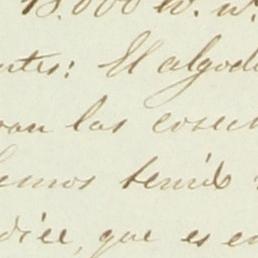 13.000 W. w.
ntes: El algod
van las cosec
emos tenido
dice, que es en